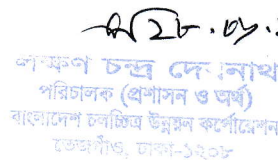 ২৮.০৮.
লক্ষণ চন্দ্র দেবনাথ
পরিচালক (প্রশাসন ও অর্থ)
বাংলাদেশ চলচ্চিত্র উন্নয়ন কর্পোরেশন
তেজগাঁও, ঢাকা-১২০৮